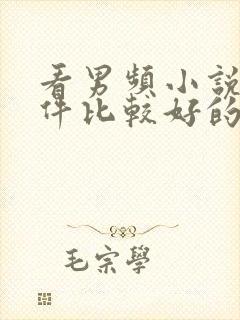 看男頻小說
件比較好的
毛宗學